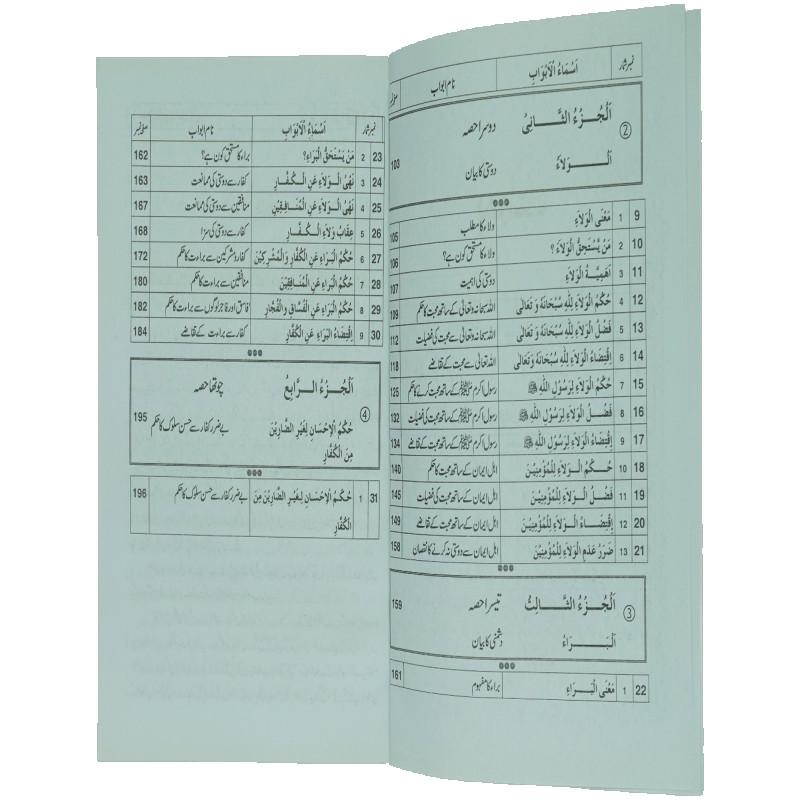 نمبر شمار اَسْمَاءُ الْاَبْوَابِ نام ابواب صفحہ نمبر
② اَلْجُزْءُ الثَّانِیْ دوسرا حصہ
اَلْوَلَاءُ دوستی کا بیان 103
9 1 مَعْنَی الْوَلَاءِ ولاء کا مطلب 105
10 2 مَنْ یَّسْتَحِقُّ الْوَلَاءَ ؟ ولاء کا مستحق کون ہے؟ 106
11 3 اَهَمِیَّةُ الْوَلَاءِ دوستی کی اہمیت 107
12 4 حُکْمُ الْوَلَاءِ لِلّٰهِ سُبْحَانَهٗ وَ تَعَالٰی اللہ سبحانہ وتعالیٰ کے ساتھ محبت کا حکم 109
13 5 فَضْلُ الْوَلَاءِ لِلّٰهِ سُبْحَانَهٗ وَ تَعَالٰی اللہ سبحانہ وتعالیٰ سے محبت کی فضیلت 112
14 6 اِقْتِضَاءُ الْوَلَاءِ لِلّٰهِ سُبْحَانَهٗ وَتَعَالٰی اللہ تعالیٰ سے محبت کے تقاضے 118
15 7 حُکْمُ الْوَلَاءِ لِرَسُوْلِ اللّٰهِ ﷺ رسول اکرم ﷺ کے ساتھ محبت کرنے کا حکم 125
16 8 فَضْلُ الْوَلَاءِ لِرَسُوْلِ اللّٰهِ ﷺ رسول اکرم ﷺ کے ساتھ محبت کی فضیلت 132
17 9 اِقْتِضَاءُ الْوَلَاءِ لِرَسُوْلِ اللّٰهِ ﷺ رسول اکرم ﷺ کے ساتھ محبت کے تقاضے 134
18 10 حُکْمُ الْوَلَاءِ لِلْمُؤْمِنِیْنَ اہل ایمان کے ساتھ محبت کا حکم 140
19 11 فَضْلُ الْوَلَاءِ لِلْمُؤْمِنِیْنَ اہل ایمان کے ساتھ محبت کی فضیلت 145
20 12 اِقْتِضَاءُ الْوَلَاءِ لِلْمُؤْمِنِیْنَ اہل ایمان کے ساتھ محبت کے تقاضے 149
21 13 ضَرَرُ عَدْمِ الْوَلَاءِ لِلْمُؤْمِنِیْنَ اہل ایمان سے دوستی نہ کرنے کا نقصان 158
③ اَلْجُزْءُ الثَّالِثُ تیسرا حصہ
اَلْبَرَاءُ دشمنی کا بیان 159
22 1 مَعْنَی الْبَرَاءِ براء کا مفہوم 161
نمبر شمار اَسْمَاءُ الْاَبْوَابِ نام ابواب صفحہ نمبر
23 2 مَنْ یَّسْتَحِقُّ الْبَرَاءَ؟ براء کا مستحق کون ہے؟ 162
24 3 نَهْیُ الْوَلَاءِ عَنِ الْکُفَّارِ کفار سے دوستی کی ممانعت 163
25 4 نَهْیُ الْوَلَاءِ عَنِ الْمُنَافِقِیْنَ منافقین سے دوستی کی ممانعت 167
26 5 عِقَابُ وَلَاءِ الْکُفَّارِ کفار سے دوستی کی سزا 168
27 6 حُکْمُ الْبَرَاءِ عَنِ الْکُفَّارِ وَالْمُشْرِکِیْنَ کفار و مشرکین سے براءت کا حکم 172
28 7 حُکْمُ الْبَرَاءِ عَنِ الْمُنَافِقِیْنَ منافقین سے براءت کا حکم 180
29 8 حُکْمُ الْبَرَاءِ عَنِ الْفُسَّاقِ وَالْفُجَّارِ فاسق اور فاجر لوگوں سے براءت کا حکم 182
30 9 اِقْتِضَاءُ الْبَرَاءِ عَنِ الْکُفَّارِ کفار سے براءت کے تقاضے 184
④ اَلْجُزْءُ الرَّابِعُ چوتھا حصہ
حُکْمُ الْاِحْسَانِ لِغَیْرِ الضَّارِیْنَ بے ضرر کفار سے حسن سلوک کا حکم 195
مِنَ الْکُفَّارِ
31 1 حُکْمُ الْاِحْسَانِ لِغَیْرِ الضَّارِیْنَ مِنَ بے ضرر کفار سے حسن سلوک کا حکم 196
الْکُفَّارِ